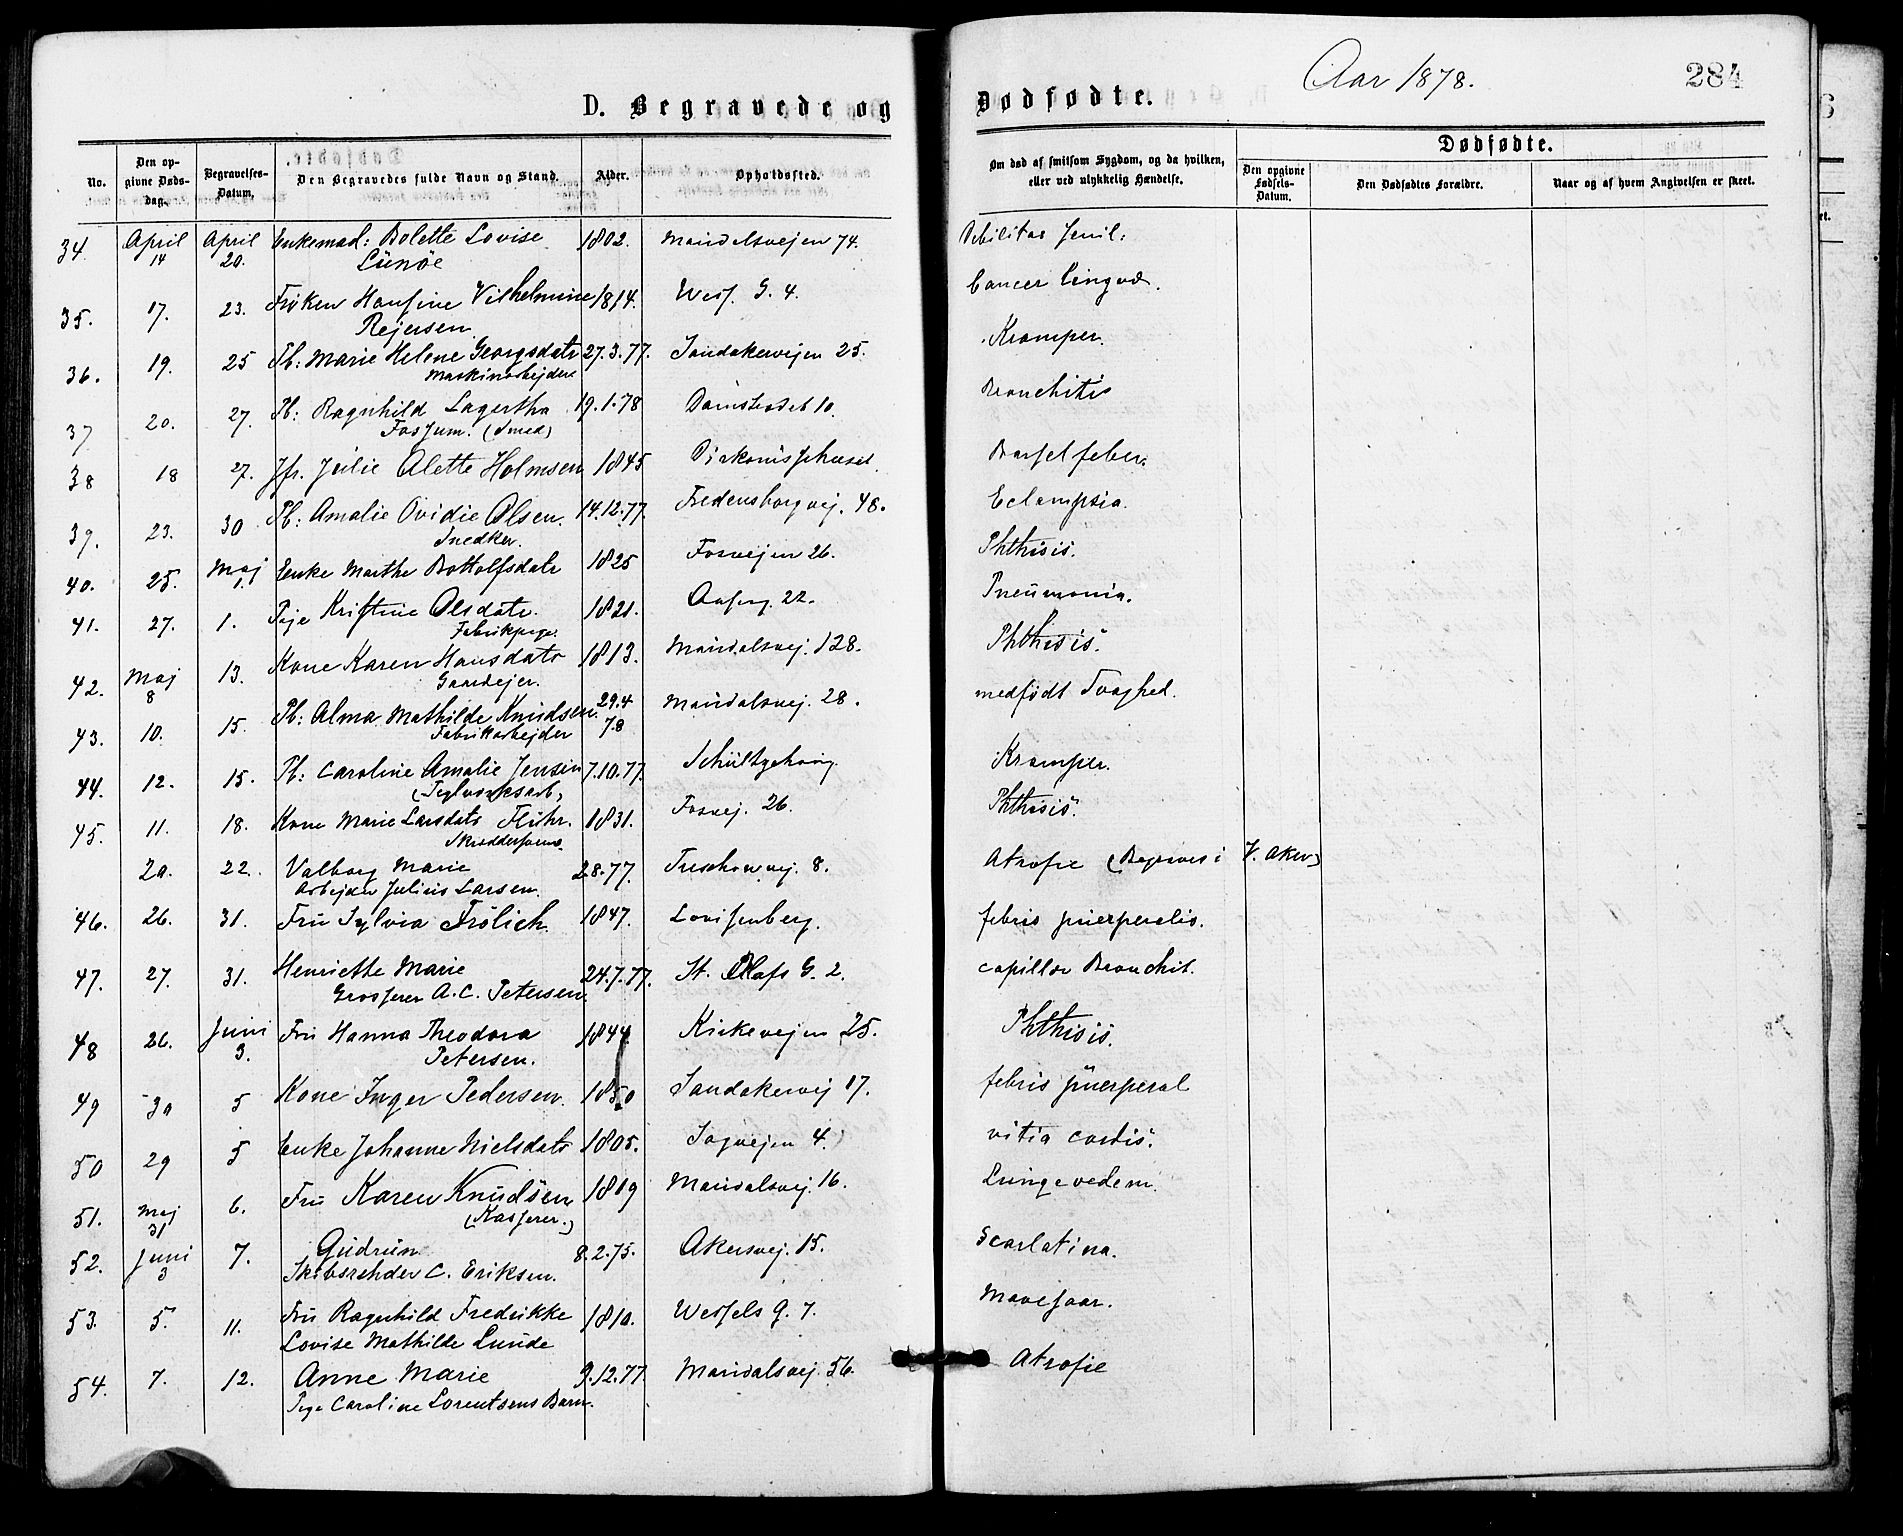 Aar 1878.
284
D. Begravede og Dødfødte.
No.
Den opgivne Døds-Dag.
Begravelses-Datum.
Den Begravedes fulde Navn og Stand.
Alder.
Opholdssted.
Om død af smitsom Sygdom, og da hvilken, eller ved ulykkelig Hændelse.
Dødfødte.
Den opgivne Fødsels-Datum.
Den Dødfødtes Forældre.
Naar og af hvem Angivelsen er skeet.
34. April 14 April 20. Enkemad: Bolette Lovise 1802. Maridalsvejen 74. Debilitas senil:
Lünöe
35. 17. 23. Frøken Hansine Vilhelmine 1814. Wess. G. 4. Cancer lingvæ.
Rejersen
36. 19. 25 Pb: Marie Helene Georgsdatr 27.3.77. Sandakervejen 25. Kramper.
Maskinarbejder
37 20. 27. Pb: Ragnhild Lagertha 19.1.78 Damstrædet 10. Bronchitis
Fossum. (Smed)
38 18 27. Jfr. Julie Alette Holmsen 1845 Diakonissehuset. Barselfeber.
39. 23. 30 Pb: Amalie Ovidie Olsen. 14.12.77. Fredensborgvej. 48. Eclampsia.
Snedker.
40. 25. Maj 1. Enke Marthe Bottolfsdatr 1825 Fosvejen 26. Phthisis.
41. 27. 1. Pige Kristine Olsdatr. 1821. Aasg. 22. Pneumonia.
Fabrikpige.
42. Maj 8 13. Kone Karen Hansdatr 1813. Maridalsvej. 128. Phthisis.
Gaardejer.
43. 10. 15. Pb: Alma Mathilde Knudsen. 29.4 78 Maridalsvej. 28. medfødt Svaghed.
Fabrikarbejder
44. 12. 15. Pb: Caroline Amalie Jensen 7.10.77. Schültzehaug. Kramper.
(Teglværksarb)
45. 11. 18. Kone Marie Larsdatr Flühr. 1831. Fosvej. 26. Phthisis.
20. 22. Valborg Marie 2.8.77. Treschowvej. 8. Atrofie (Begraves i V. Aker)
Arbejder Julius Larsen.
46. 26. 31. Fru Sylvia Frölich 1847. Lovisenberg. febris puerperalis.
47. 27. 31. Henriette Marie 24.7.77. St. Olafs G. 2. capillær Bronchit.
Grosserer A.C. Petersen.
48 26. Juni 3. Fru Hanna Theodora 1844 Kirkevejen 25. Phthisis.
Petersen.
49 30 5 Kone Inger Pedersen. 1850 Sandakervej 17. febris puerperal
50 29 5 Enke Johanne Nielsdatr 1805. Sagvejen 4. vitia cordis.
51. Maj 31 6. Fru Karen Knudsen 1819 Maridalsvej. 16. Lungeoedem.
(Kasserer.)
52. Juni 3 7. Gudrun 8.2.75. Akersvej. 15. Scarlatina.
Skibsrehder C. Eriksen.
53. 5. 11. Fru Ragnhild Fredrikke 1810. Wessels G. 7. Mavesaar.
Lovise Mathilde Lunde
54. 7. 12. Anne Marie 9.12.77 Maridalsvej. 56. Atrofie
Pige Caroline Lorentsens Barn.